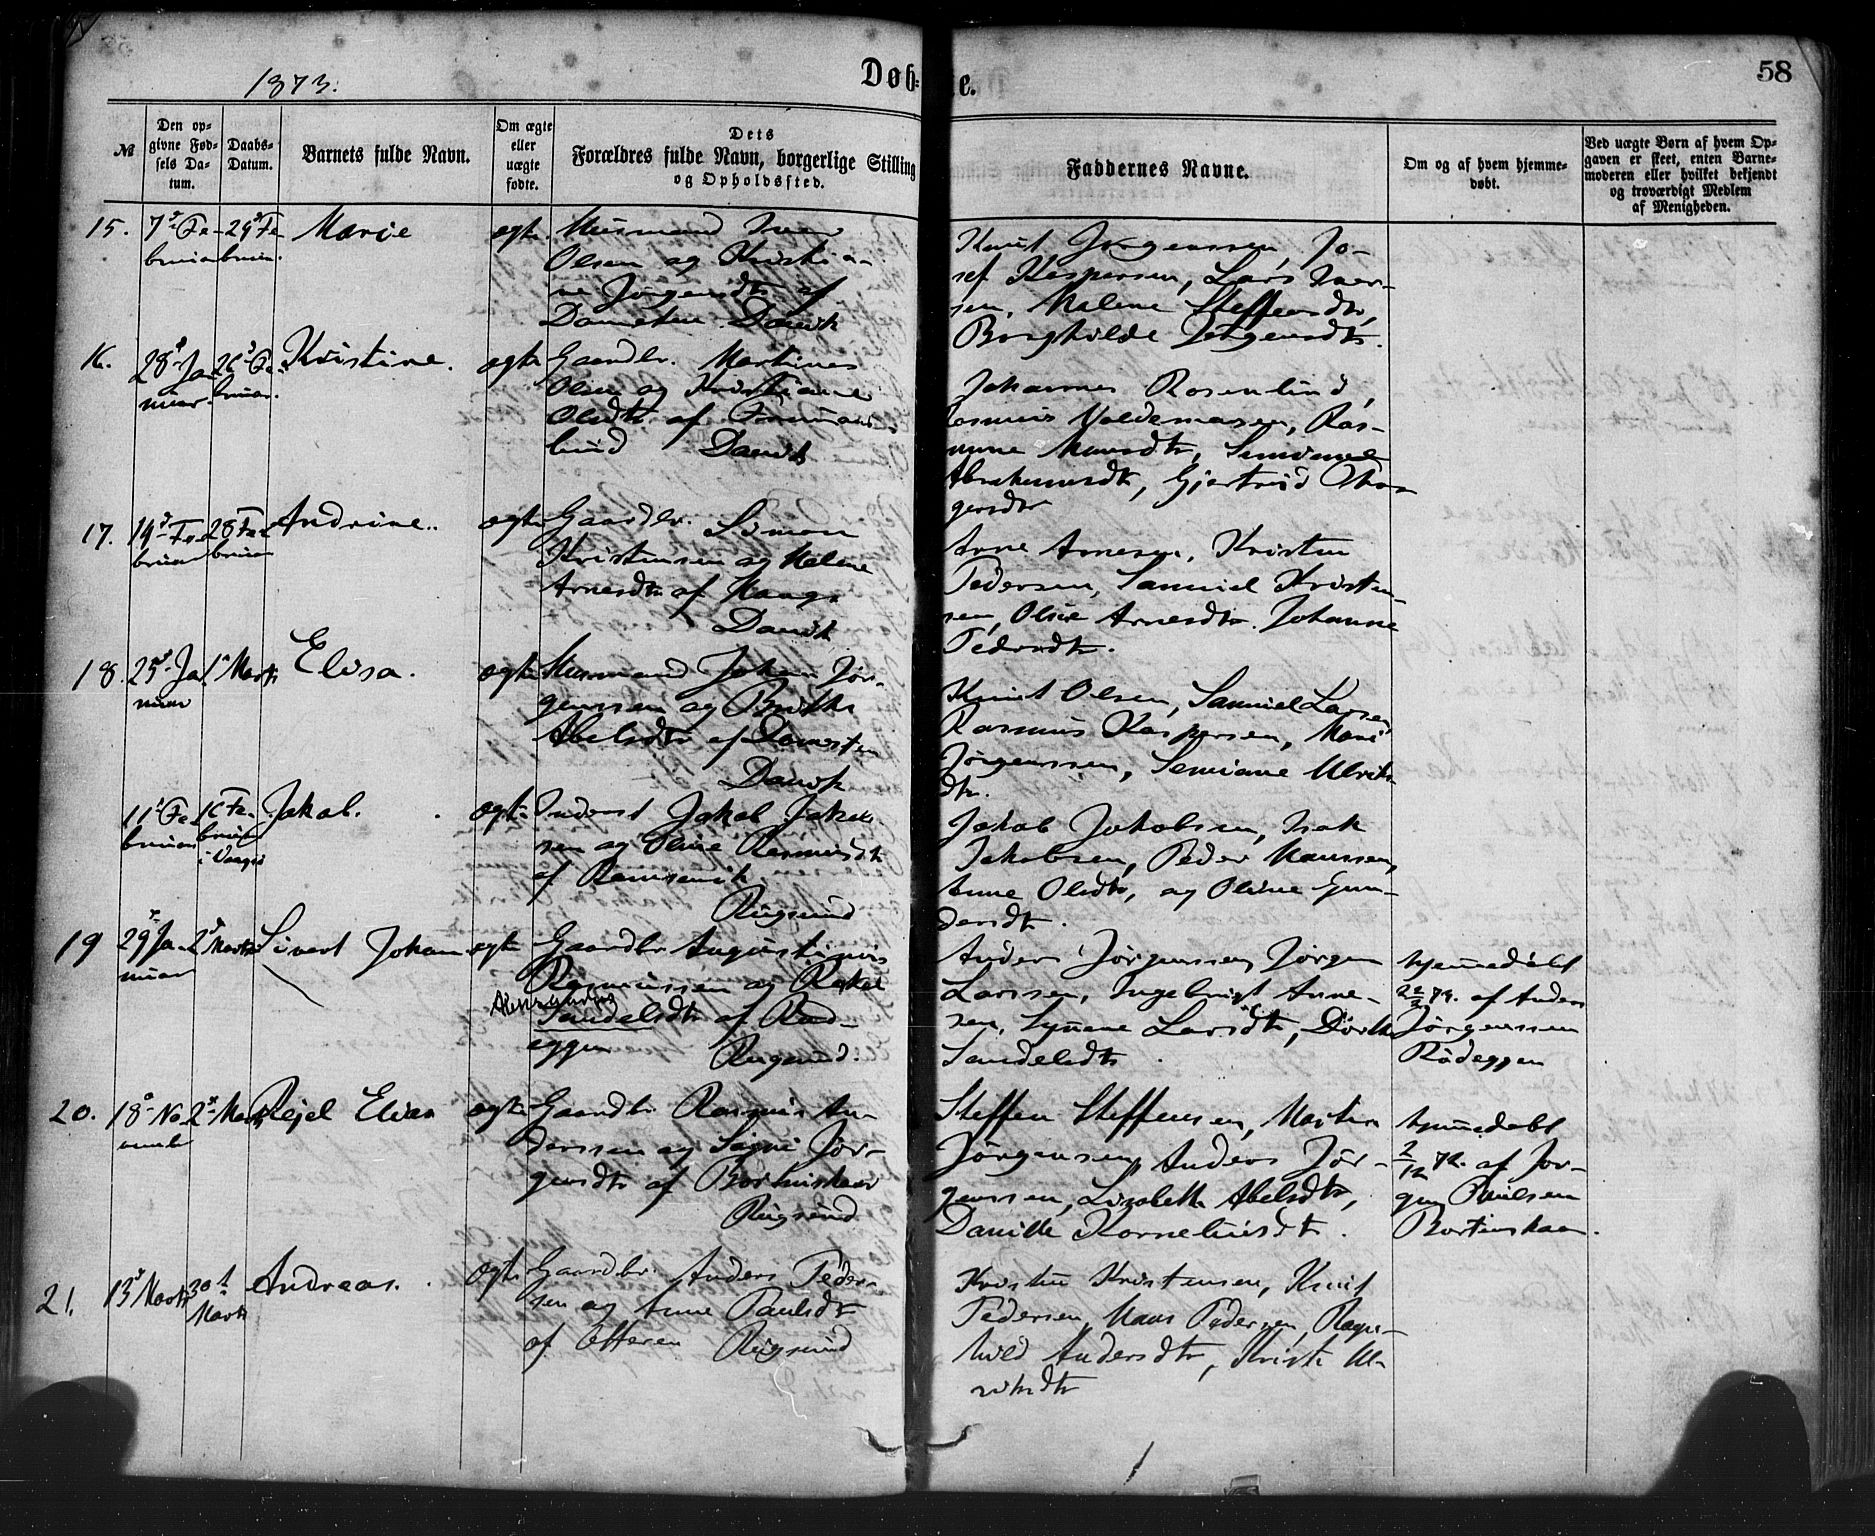 1873.
Døb=
te.
58
№
Den op=
givne Fød=
sels Da=
tum.
Daabs=
Datum.
Barnets fulde Navn.
Om ægte
eller
uægte
fødte.
Dets
Forældres fulde Navn, borgerlige Stilling
og Opholdssted.
Faddernes Navne.
Om og af hvem hjemme=
døbt.
Ved uægte Børn af hvem Op=
gaven er skeet, enten Barne=
moderen eller hvilket bekjendt
og troværdigt Medlem
af Menigheden.
15. 7d Fe-
bruar
29d Fe-
bruar.
Marie
ægte
Husmand Iver
Olsen og Kristia-
ne Jørgensdtr af
Damsten Davik
Knut Jørgenssen, Jo-
sef Kaspersen, Lars Iver-
sen, Malene Steffensdtr,
Borghilde Jørgensdtr.
16. 28d Ja-
nuar
26d Fe-
bruar.
Kristine.
ægte
Gaardbr. Martinus
Olsen og Kristiane
Olsdtr af
lund Davik
Johannes Rosenlund,
Rasmus Valdemarsen, Ras-
mine Monsdtr,
Abrahamsdtr, Gjertrud
gersdtr
17. 14d Fe-
bruar
28 Fe-
bruar
Andrine.
ægte
Gaardbr. Simon
Kristensen og Malene
Arnesdtr af Haage
Davik
Arne Arnesen, Kristen
Pedersen, Samuel Kristen-
sen, Oline Arnesdtr. Johanne
Pedersdtr.
18. 25d Ja-
nuar
1 Marts
Elisa.
ægte
Husmand Johan Jør-
genssen og Brithe
Abelsdtr af Damsten
Davik
Knut Olsen, Samuel Larsen
Rasmus Kaspersen, Mari
Jørgenssen, Semiane Ulriks-
dtr.
11d Fe-
bruar
16 Fe-
bruar
i Vaagsø
Jakob.
ægte
Inderst Jakob Jakob-
sen og Oline Rasmusdtr
af
Rugsund
Jakob Jakobsen, Isak
Jakobsen, Peder Hanssen,
Anne Olsdtr, og Oline Gun-
dersdtr.
19 29d Ja-
nuar
2d Marts
Sivert Johan
ægte
Gaardbr Augustinus
Rasmussen og Rakel
Alexandrine
Sandelsdtr af Rød-
eggen Rugsund.
Anders Jørgenssen, Jørgen
Larssen, Ingebrigt Arne-
sen, Synneve Larsdtr, Dorthe
Sandelsdtr.
hjemmedøbt
af Anders
Jørgenssen
Rødeggen
20. 18d No-
vember
2d Marts
Rejel Elias
ægte
Gaardbr Rasmus An-
derssen og Signe Jør-
gensdtr af Bortnskaar
Rugsund
Steffen Steffensen, Martin
Jørgensen, Anders Jør-
genssen, Lisabeth Abelsdtr,
Danille Korneliusdtr.
hjemmedøbt
2/12 72. af Jør-
gen Paulsen
Bortnskaar.
21. 13d Marts
30t
Marts
Andreas.
ægte
Gaardbr. Anders Peder-
sen og Anne Paulsdtr
af Totteren Rugsund
Kristen Kristensen, Knut
Pedersen, Hans Pedersen, Ragn-
hild Andersdtr, Kristi Ul-
riksdtr